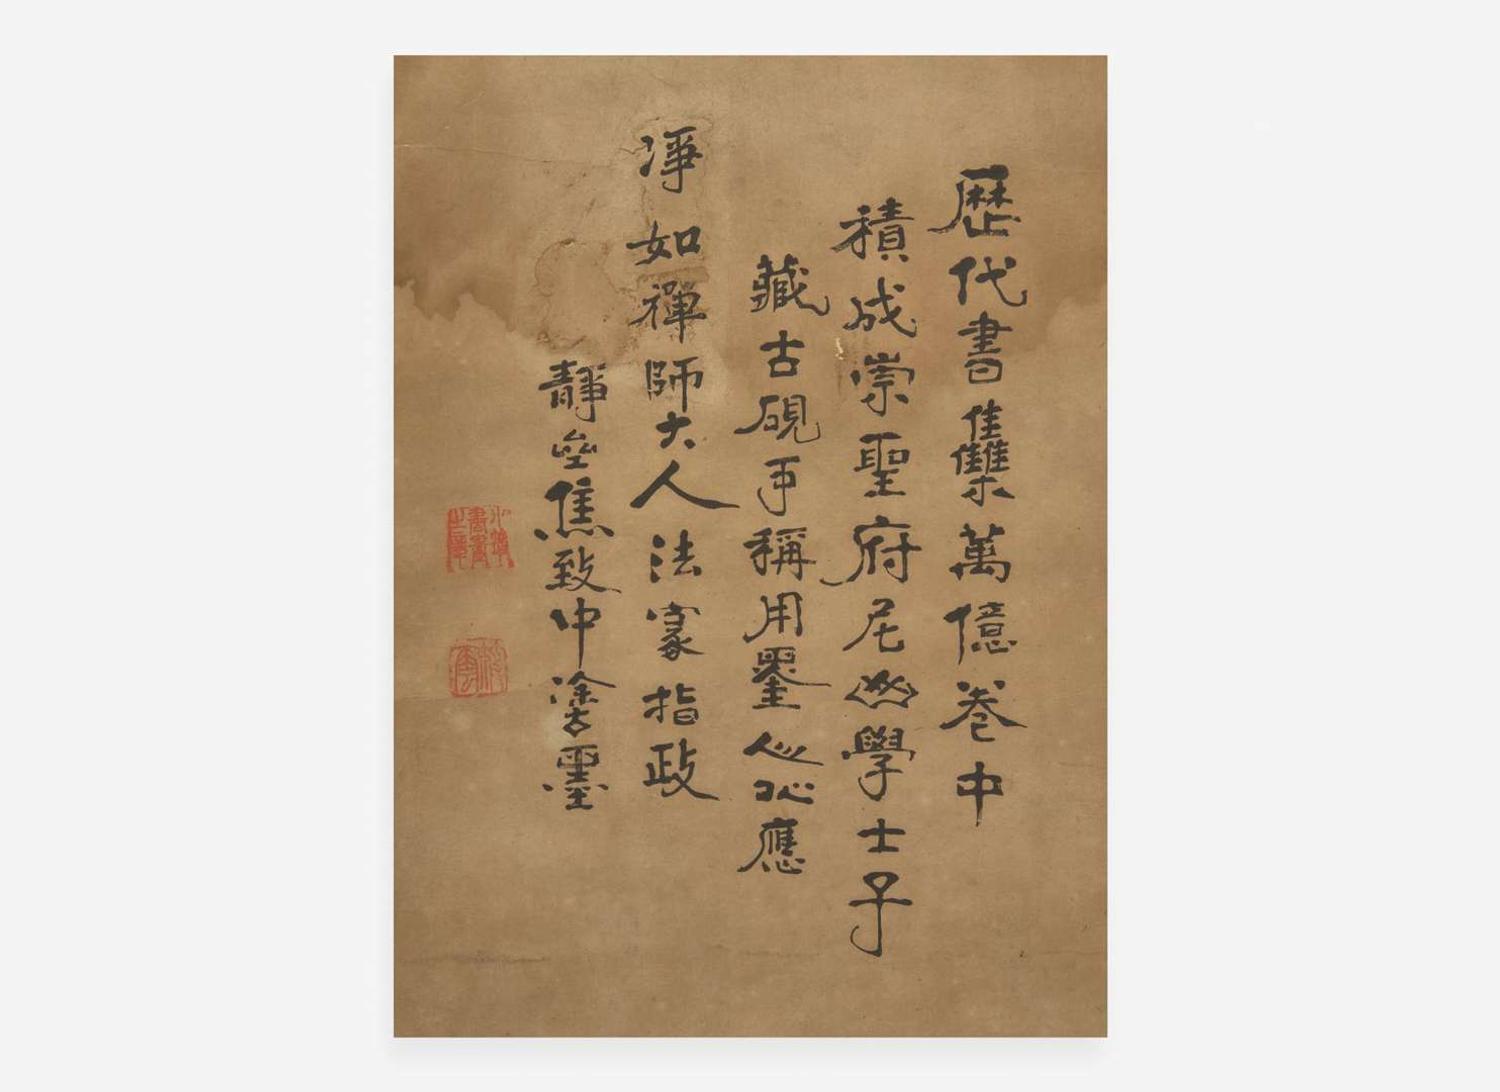 歷代書雧萬億卷中
積成崇聖府尼山學士子
藏古硯手稱用墨心必應
淨如禪師大人法家指政
靜 焦致中塗墨